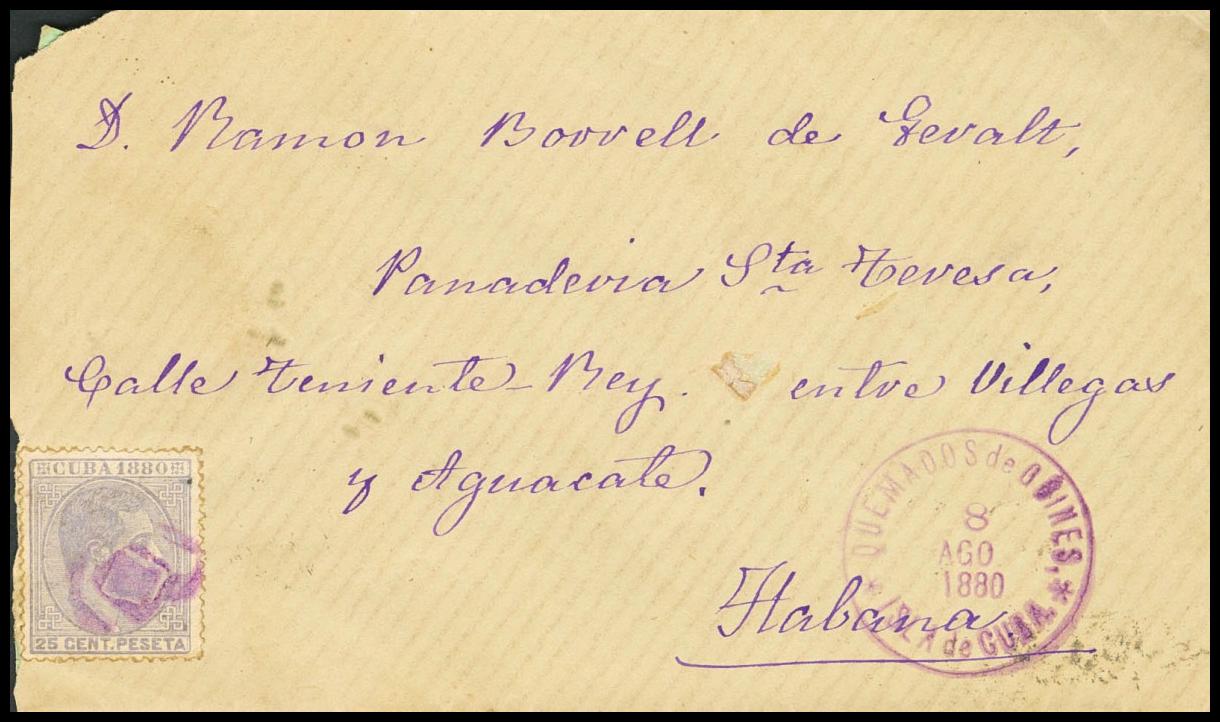 D. Ramon Borrell de Gevalt,
Panaderia Sta Teresa,
Calle Teniente-Rey. entre Villegas
y Aguacate.
CUBA 1880
25 CENT. PESETA
QUEMADOS de GÜINES,
8
AGO
1880
* ISLA de CUBA. *
Habana